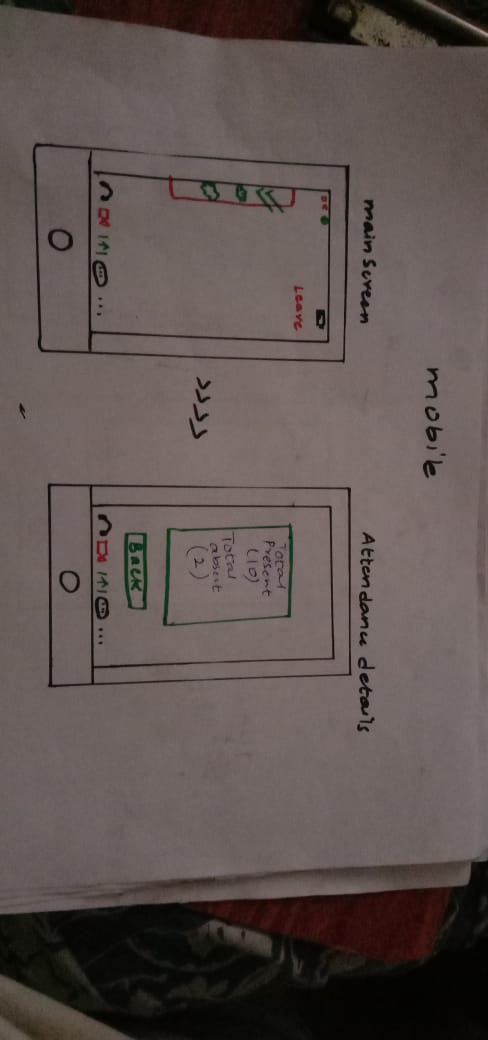 mobile
main Screen
Leave
Attendance details
Total
Present
(10)
Total
absent
(2)
Back